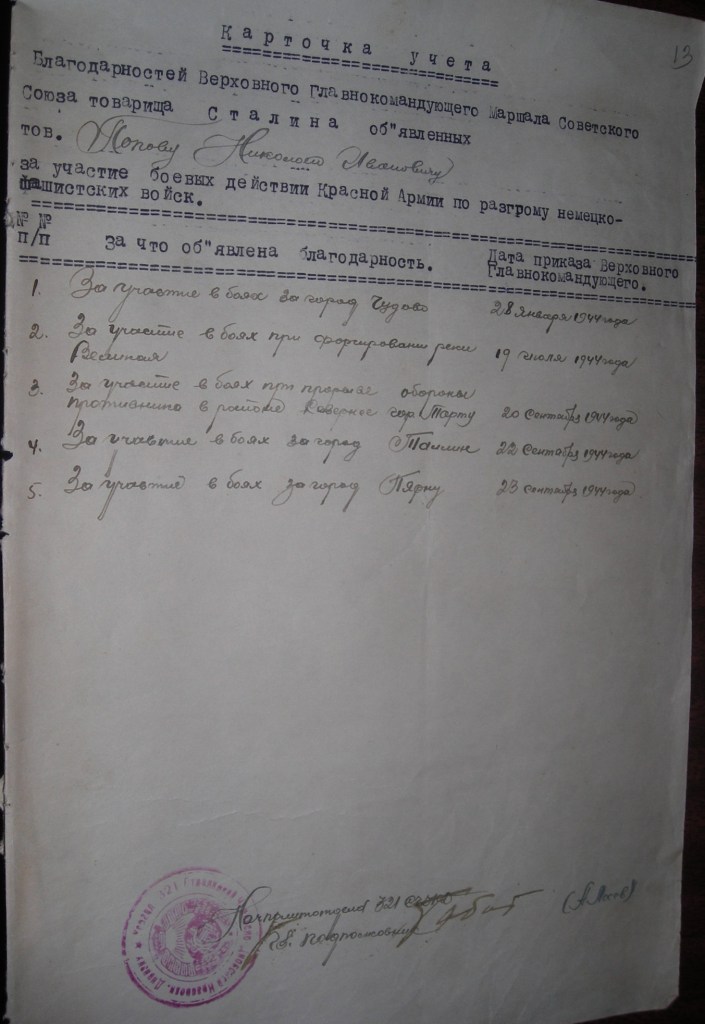 13
Карточка учета
Благодарностей Верховного Главнокомандующего Маршала Советского
Союза товарища Сталина об"явленных
тов. Попову Николаю Ивановичу
за участие боевых действии Красной Армии по разгрому немецко-
фашистских войск.
№ № п/п За что об"явлена благодарность. Дата приказа Верховного Главнокомандующего.
1. За участие в боях за город Чудово 28 января 1944 года
2. За участие в боях при форсировани реки
Великая 19 июля 1944 года
3. За участие в боях при прорыве обороны
противника в районе Севернее гор Тарту 20 сентября 1944 года
4. За участие в боях за город Таллин 22 сентября 1944 года
5. За участие в боях за город Пярну 23 сентября 1944 года
Начполитотдела 321